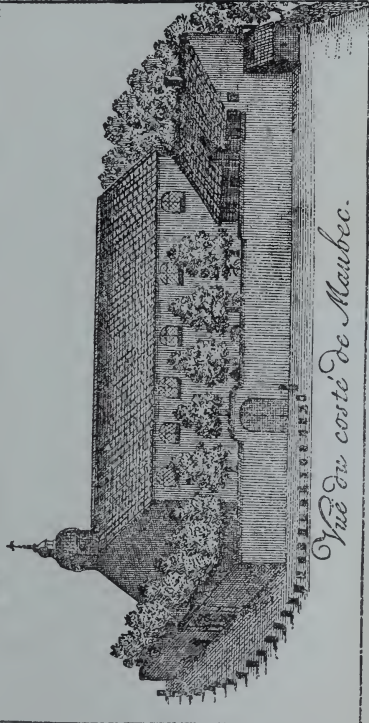 Vuë du costé de Maubec.